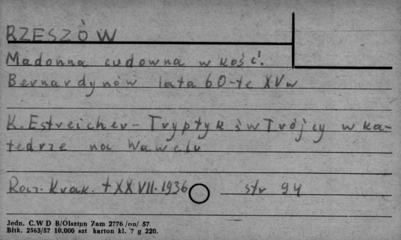 RZESZÓW
Madonna cudowna w kość.
Bernardynów lata 60-te XVw
K. Estreicher - Tryptyk św Trójcy w ka-
tedrze na Wawelu
Rocz. Krak. t XXVII. 1936 str 94
Jedn. C.W D 8/Olsztyn Zam 2776/on/ 57.
Błtk. 2563/57 10.000 szt karton kl. 7 g 220.